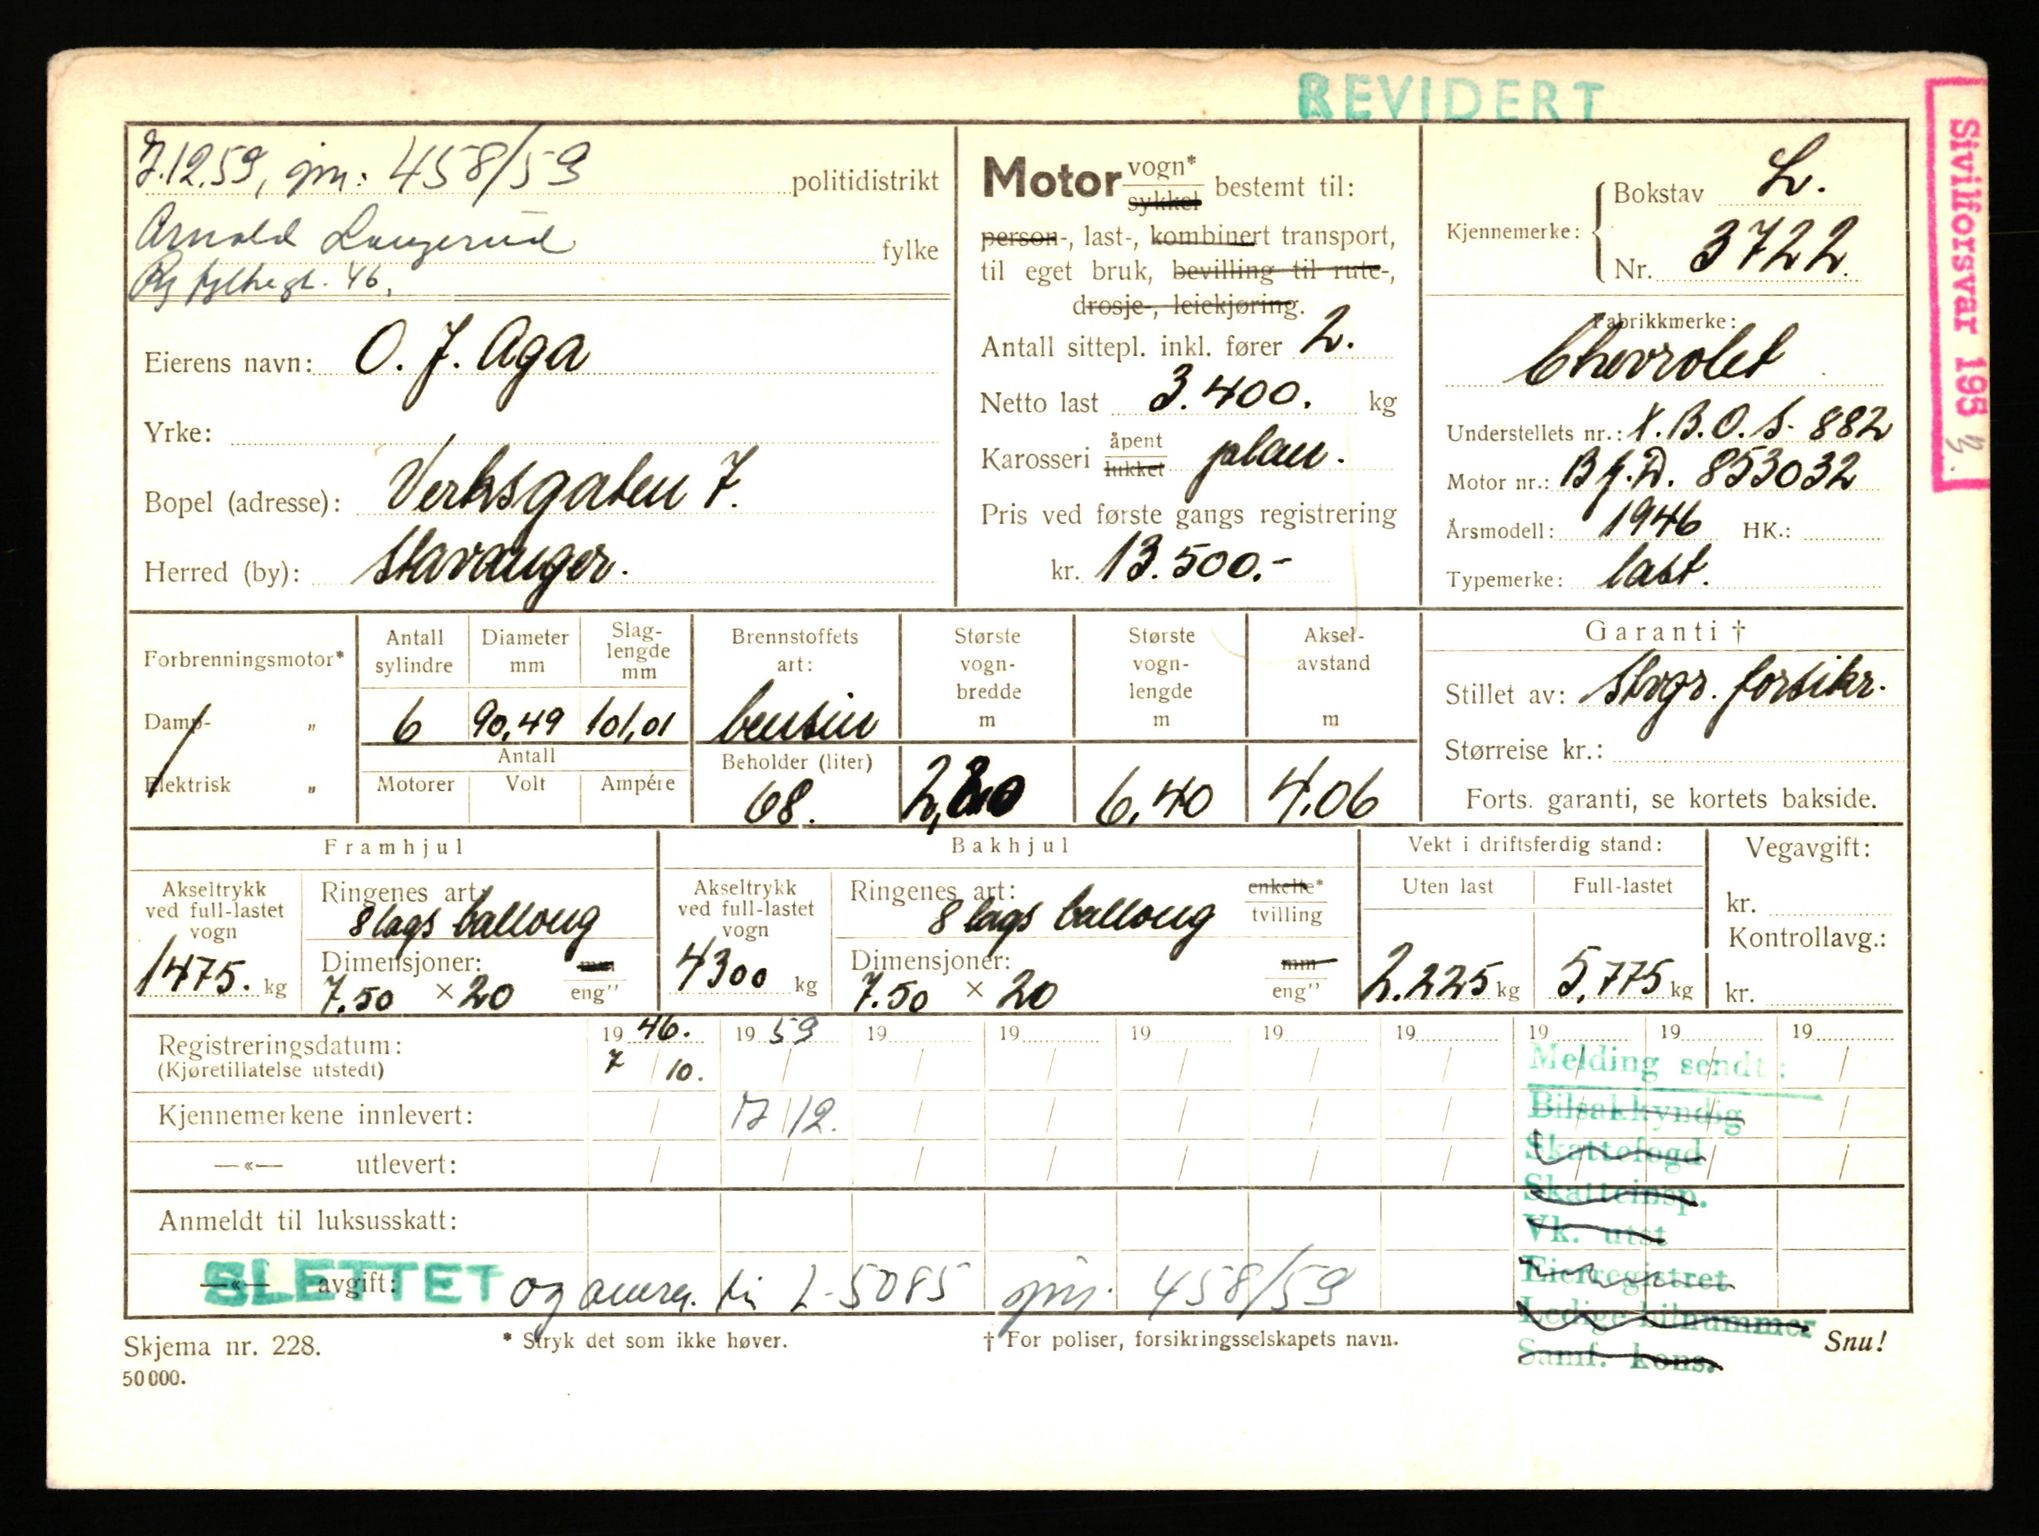 REVIDERT
Sivilforsvar 195
7.12.59, gm: 458/59 politidistrikt
Arnold Langerud fylke
46,
Eierens navn: O. J. Aga
Yrke:
Bopel (adresse): Verksgaten 7.
Herred (by): Stavanger.
Motor vogn* sykkel bestemt til:
person-, last-, kombinert transport,
til eget bruk, bevilling til rute-,
drosje-, leiekjøring.
Antall sittepl. inkl. fører 2.
Netto last 3.400. kg
Karosseri åpent lukket plan.
Pris ved første gangs registrering
kr. 13.500.-
Kjennemerke: Bokstav L.
Nr. 3722.
Fabrikkmerke:
Chevrolet
Understellets nr.: X.B.O.S. 882
Motor nr.: 853032
Årsmodell: 1946 HK.:
Typemerke: last.
Forbrenningsmotor*
Damp- „
Elektrisk „
Antall sylindre 6
Diameter mm 90,49
Slag-lengde mm 101,01
Antall
Motorer Volt Ampére
Brennstoffets art: bensin
Beholder (liter) 68.
Største vogn-bredde m
Største vogn-lengde m 6,40
Aksel-avstand m 4.06
Garanti †
Stillet av: Stvgr. forsikr.
Størreise kr.:
Forts. garanti, se kortets bakside.
Framhjul
Akseltrykk ved full-lastet vogn 1475. kg
Ringenes art: 8 lags ballong
Dimensjoner: 7.50 × 20 mm eng"
Bakhjul
Akseltrykk ved full-lastet vogn 4300 kg
Ringenes art: 8 lags ballong enkelte* tvilling
Dimensjoner: 7.50 × 20 mm eng"
Vekt i driftsferdig stand:
Uten last 2.225 kg
Full-lastet 5,775 kg
Vegavgift:
kr.
Kontrollavg.:
kr.
Registreringsdatum: 19 46. 19 59 19 19 19 19 19 19 19 19
(Kjøretillatelse utstedt) 7 / 10.
Kjennemerkene innlevert: 7/12.
—«— utlevert:
Anmeldt til luksusskatt:
—«— avgift:
SLETTET og omreg. til L-5085 gm: 458/59
Melding sendt:
Bilsakkyndig
Skattefogd
Skatteinsp.
Vk. utst
Eierregistret
Ledige bilnummer
Samf. kons.
Skjema nr. 228.
* Stryk det som ikke høver.
† For poliser, forsikringsselskapets navn.
Snu!
50 000.